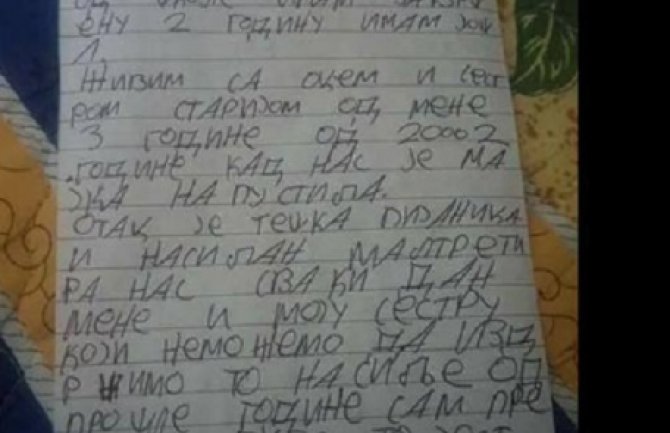 ЕНУ 2 ГОДИНУ ИМАМ ЈОШ
1,
ЖИВИМ СА ОЦЕМ И СЕСТ
РОМ СТАРИЈОМ ОД МЕНЕ
3 ГОДИНЕ ОД 20002
.ГОДИНЕ КАД НАС ЈЕ МА
ЈКА НАПУСТИЛА.
ОТАЦ ЈЕ ТЕШКА ПИЈАНИЦА
И НАСИЛАН МАЛТРЕТИ
РА НАС СВАКИ ДАН
МЕНЕ И МОЈУ СЕСТРУ
КОЈИ НЕМОЖЕМО ДА ИЗД
РЖИМО ТО НАСИЉЕ ОД
ПРОШЛЕ ГОДИНЕ САМ ПРЕ